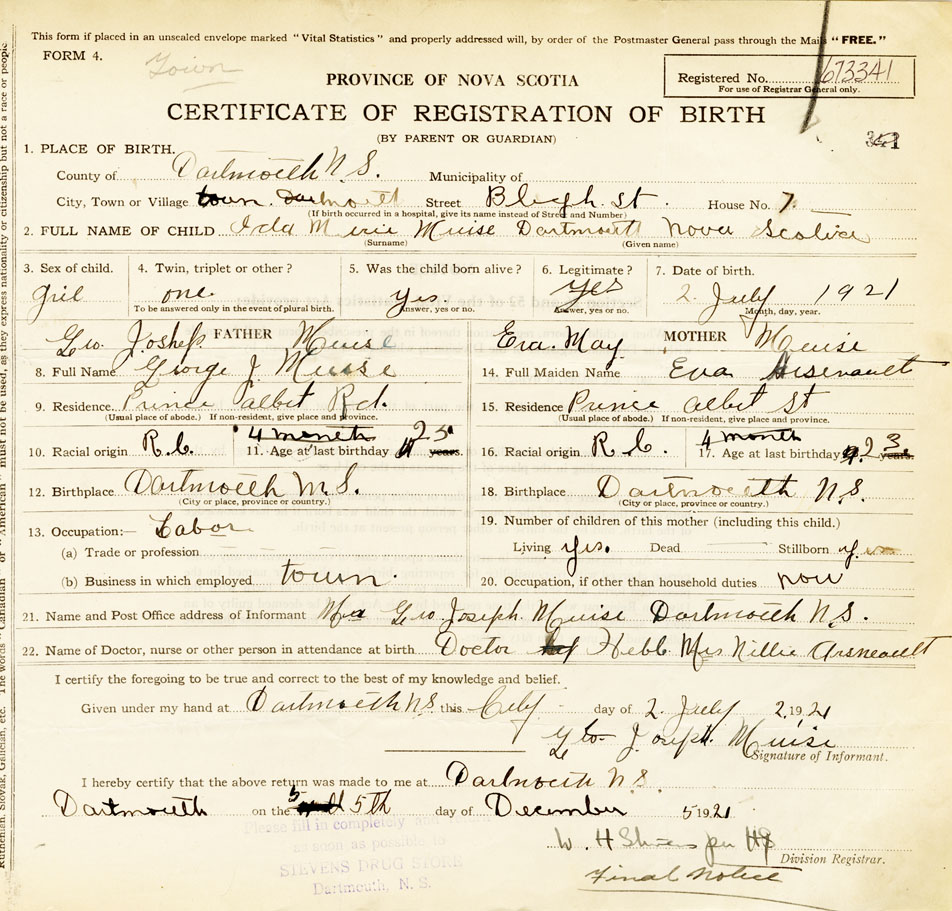 This form if placed in an unsealed envelope marked "Vital Statistics" and properly addressed will, by order of the Postmaster General pass through the Mails "FREE."
FORM 4.
Town
PROVINCE OF NOVA SCOTIA
Registered No. 673341
For use of Registrar General only.
CERTIFICATE OF REGISTRATION OF BIRTH
(BY PARENT OR GUARDIAN)
1. PLACE OF BIRTH.
County of Dartmouth N.S. Municipality of
City, Town or Village town. Dartmouth Street Bligh St. House No. 7.
(If birth occurred in a hospital, give its name instead of Street and Number)
2. FULL NAME OF CHILD Ida Marie Muise Dartmouth Nova Scotia
(Surname) (Given name)
3. Sex of child. 4. Twin, triplet or other? 5. Was the child born alive? 6. Legitimate? 7. Date of birth.
Gril one. Yes. Yes 2 July 1921
To be answered only in the event of plural birth. Answer, yes or no. Answer, yes or no. Month, day, year.
Geo. Joshep FATHER Muise Eva. May MOTHER Muise
8. Full Name George J Muise 14. Full Maiden Name Eva Arsenault
9. Residence Prince Albet Rd. 15. Residence Prince Albet St
(Usual place of abode.) If non-resident, give place and province. (Usual place of abode.) If non-resident, give place and province.
10. Racial origin R.C. 4 month 11. Age at last birthday 23 years. 16. Racial origin R.C. 4 month 17. Age at last birthday 23 years.
12. Birthplace Dartmouth N.S. 18. Birthplace Dartmouth N.S.
(City or place, province or country.) (City or place, province or country.)
13. Occupation:— Labor 19. Number of children of this mother (including this child.)
(a) Trade or profession Living Yes. Dead Stillborn
(b) Business in which employed town. 20. Occupation, if other than household duties now
21. Name and Post Office address of Informant Geo. Joseph. Muise Dartmouth N.S.
22. Name of Doctor, nurse or other person in attendance at birth Doctor Hebb Mrs Nillie Arsneault
I certify the foregoing to be true and correct to the best of my knowledge and belief.
Given under my hand at Dartmouth N.S this day of 2. July 2, 1921
Geo Joseph. Muise
Signature of Informant.
I hereby certify that the above return was made to me at Dartmouth N.S.
Dartmouth on the 5th day of December 5 1921
Please fill in completely and
as soon as possible to
STEVENS DRUG STORE
Dartmouth, N. S.
W. H Stevens per
Division Registrar.
Final Notice